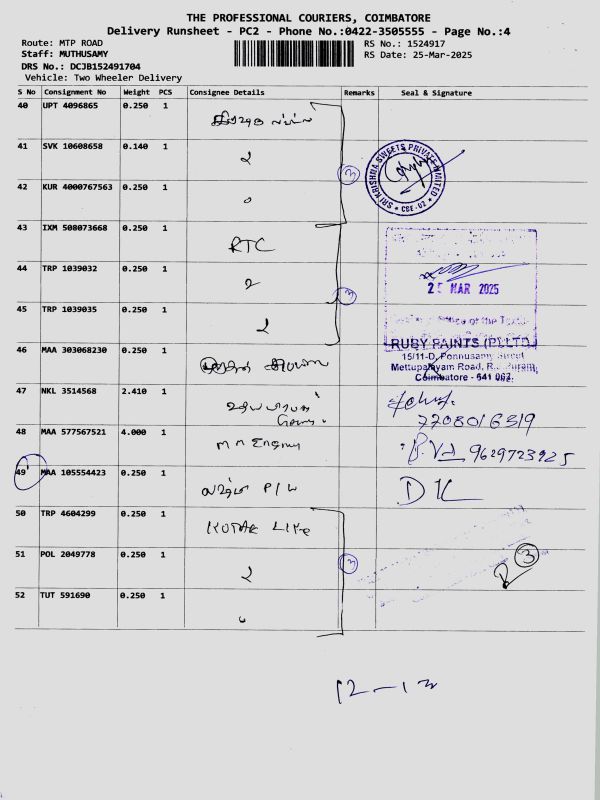 THE PROFESSIONAL COURIERS, COIMBATORE
Delivery Runsheet - PC2 - Phone No.:0422-3505555 - Page No.:4
Route: MTP ROAD
RS No.: 1524917
Staff: MUTHUSAMY
RS Date: 25-Mar-2025
DRS No.: DCJB152491704
Vehicle: Two Wheeler Delivery
S No Consignment No Weight PCS Consignee Details Remarks Seal & Signature
40 UPT 4096865 0.250 1
41 SVK 10608658 0.140 1 2
3
SRI KRISHNA SWEETS PRIVATE LIMITED
* CBE-02 *
42 KUR 4000767563 0.250 1
43 IXM 508073668 0.250 1 RTC
44 TRP 1039032 0.250 1 2
3
25 MAR 2025
45 TRP 1039035 0.250 1 2
Office of the
46 MAA 303068230 0.250 1
RUBY PAINTS (P) LTD.
15/11-D, Ponnusamy Street
Mettupalayam Road, R.S. Puram,
Coimbatore - 641 002.
47 NKL 3514568 2.410 1
7708016319
48 MAA 577567521 4.000 1 9629723925
49 MAA 105554423 0.250 1 P/W DK
50 TRP 4604299 0.250 1 KOTAK LIFE
51 POL 2049778 0.250 1 2
3
3
52 TUT 591690 0.250 1
12-13